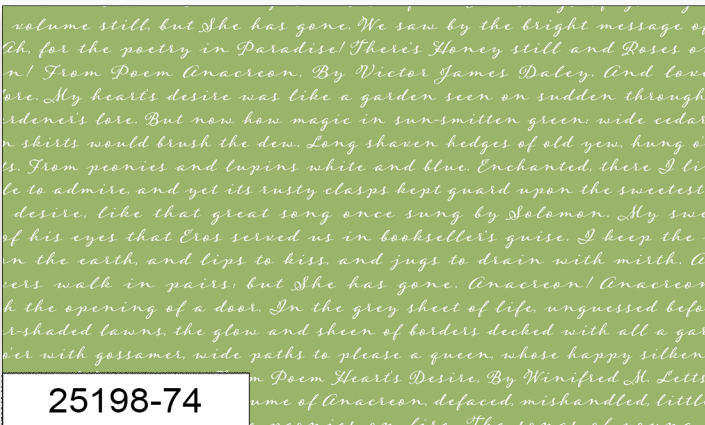 volume still, but She has gone. We saw by the bright message of
Ah, for the poetry in Paradise! There's Honey still and Roses o
n! From Poem Anacreon, By Victor James Daley. And love
ore. My heart's desire was like a garden seen on sudden through
rdener's lore. But now how magic in sun-smitten green; wide cedar
n skirts would brush the dew. Long shaven hedges of old yew, hung o
ts. From peonies and lupins white and blue. Enchanted, there I li
le to admire, and yet its rusty clasps kept guard upon the sweetest
desire, like that great song once sung by Solomon. My swe
of his eyes that Eros served us in bookseller's guise. I keep the
n the earth, and lips to kiss, and jugs to drain with mirth. A
vers walk in pairs; but She has gone. Anacreon! Anacreon
h the opening of a door. In the grey sheet of life, unguessed befo
r-shaded lawns, the glow and sheen of borders decked with all a gar
oer with gossamer, wide paths to please a queen, whose happy silken
m Poem Heart's Desire, By Winifred M. Letts
ume of Anacreon, defaced, mishandled, little
25198-74